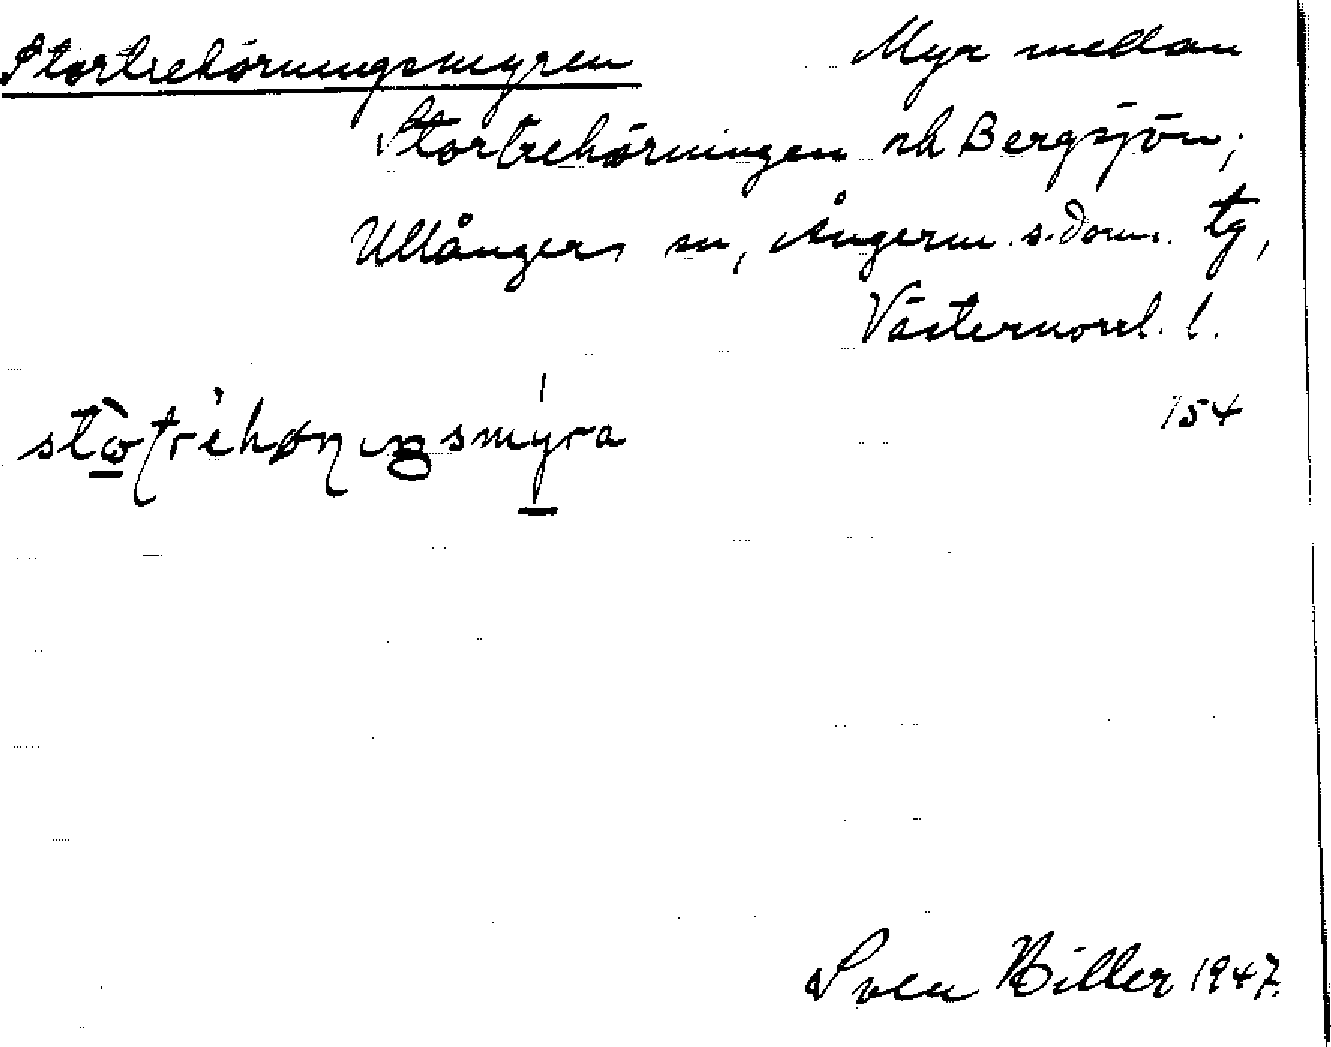 Stortrehörningsmyren Myr mellan
Stortrehörningen och Bergsjön;
Ullångers sn, Ångerm. s. dom. tg,
Västernorrl. l.
154
Sven Hiller 1947.